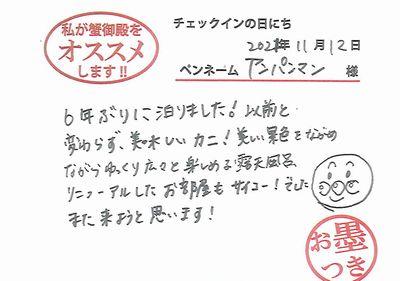 私が蟹御殿を
オススメ
します!!
チェックインの日にち
2021年11月12日
ペンネーム アンパンマン 様
6年ぶりに泊りました!以前と
変わらず、美味しいカニ!美しい景色をながめ
ながらゆっくり広々と楽しめる露天風呂
リニューアルしたお部屋もサイコー!でした
また来ようと思います!
お墨
つき